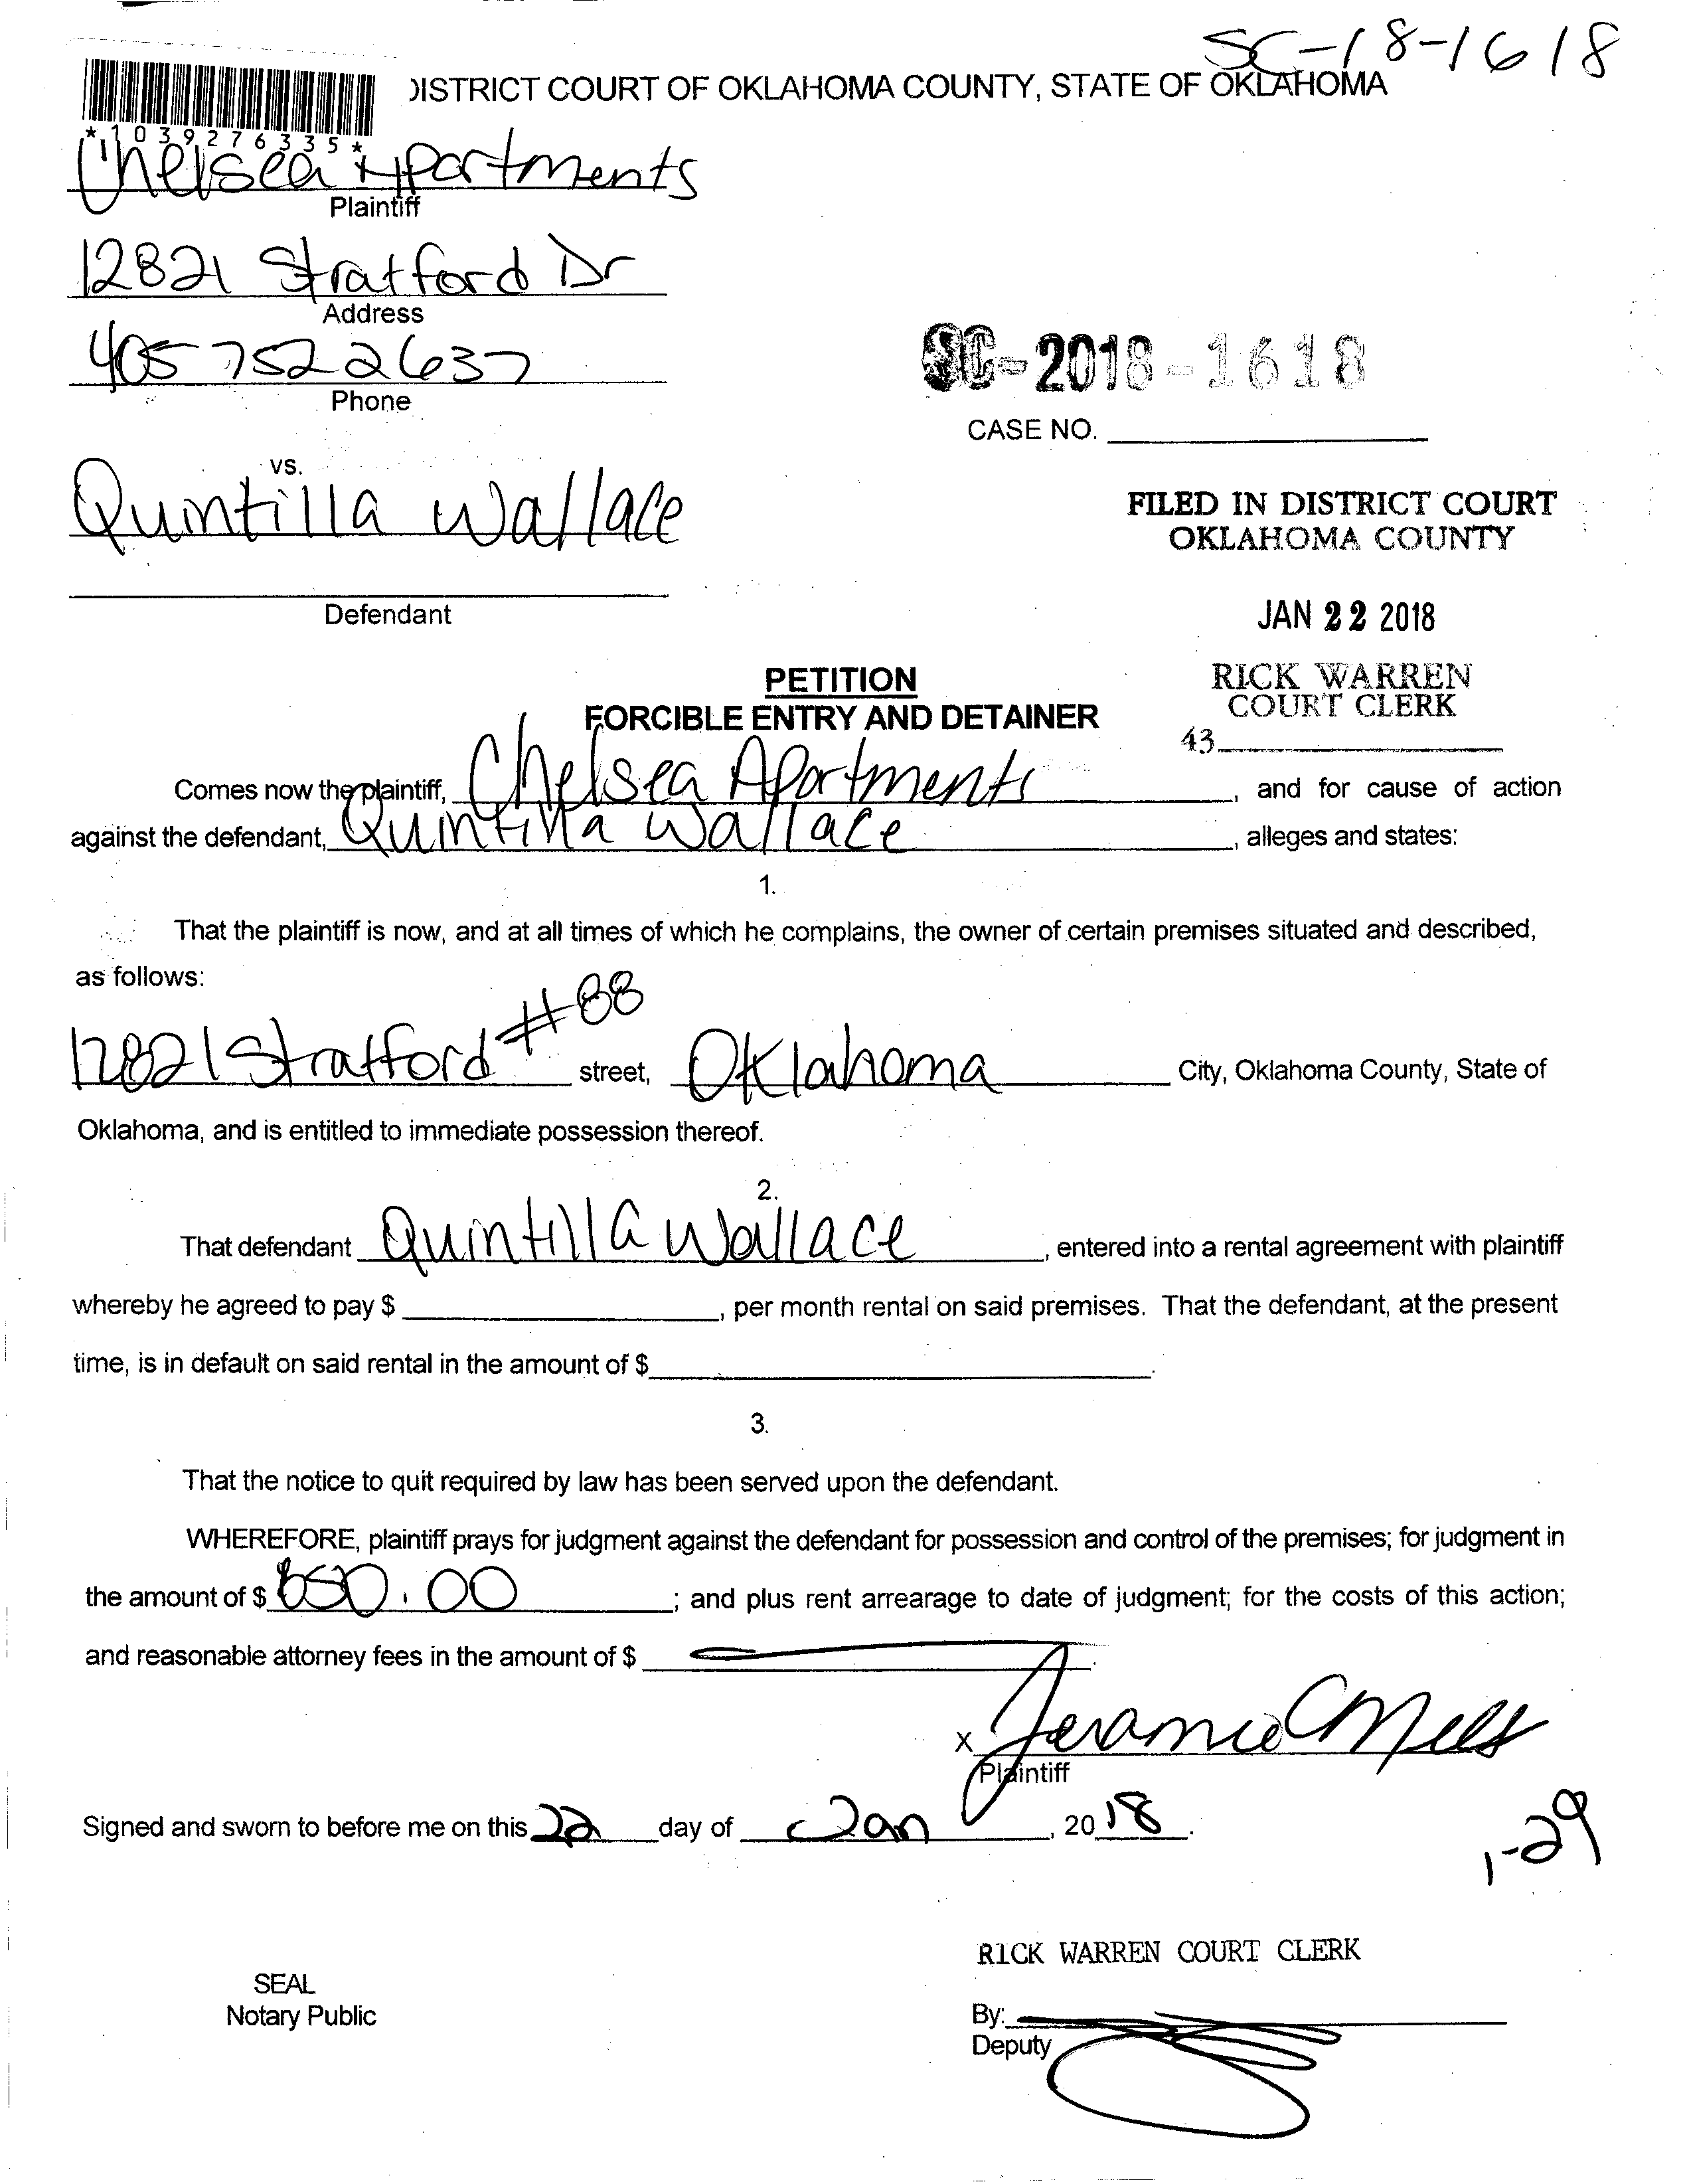 SC-18-1618
DISTRICT COURT OF OKLAHOMA COUNTY, STATE OF OKLAHOMA
*1039276335*
Chelsea Apartments
Plaintiff
12821 Stratford Dr
Address
405 752 2637
Phone
SC-2018-1618
CASE NO.
vs.
Quintilla Wallace
FILED IN DISTRICT COURT
OKLAHOMA COUNTY
Defendant
JAN 22 2018
PETITION
FORCIBLE ENTRY AND DETAINER
RICK WARREN
COURT CLERK
43
Comes now the plaintiff, Chelsea Apartments, and for cause of action
against the defendant, Quintilla Wallace, alleges and states:
1.
That the plaintiff is now, and at all times of which he complains, the owner of certain premises situated and described,
as follows:
12821 Stratford #88 street, Oklahoma City, Oklahoma County, State of
Oklahoma, and is entitled to immediate possession thereof.
2.
That defendant Quintilla Wallace, entered into a rental agreement with plaintiff
whereby he agreed to pay $ , per month rental on said premises. That the defendant, at the present
time, is in default on said rental in the amount of $ .
3.
That the notice to quit required by law has been served upon the defendant.
WHEREFORE, plaintiff prays for judgment against the defendant for possession and control of the premises; for judgment in
the amount of $ 650.00 ; and plus rent arrearage to date of judgment; for the costs of this action;
and reasonable attorney fees in the amount of $ .
X
Plaintiff
Signed and sworn to before me on this 22 day of Jan, 2018.
1-29
RICK WARREN COURT CLERK
SEAL
Notary Public
By:
Deputy